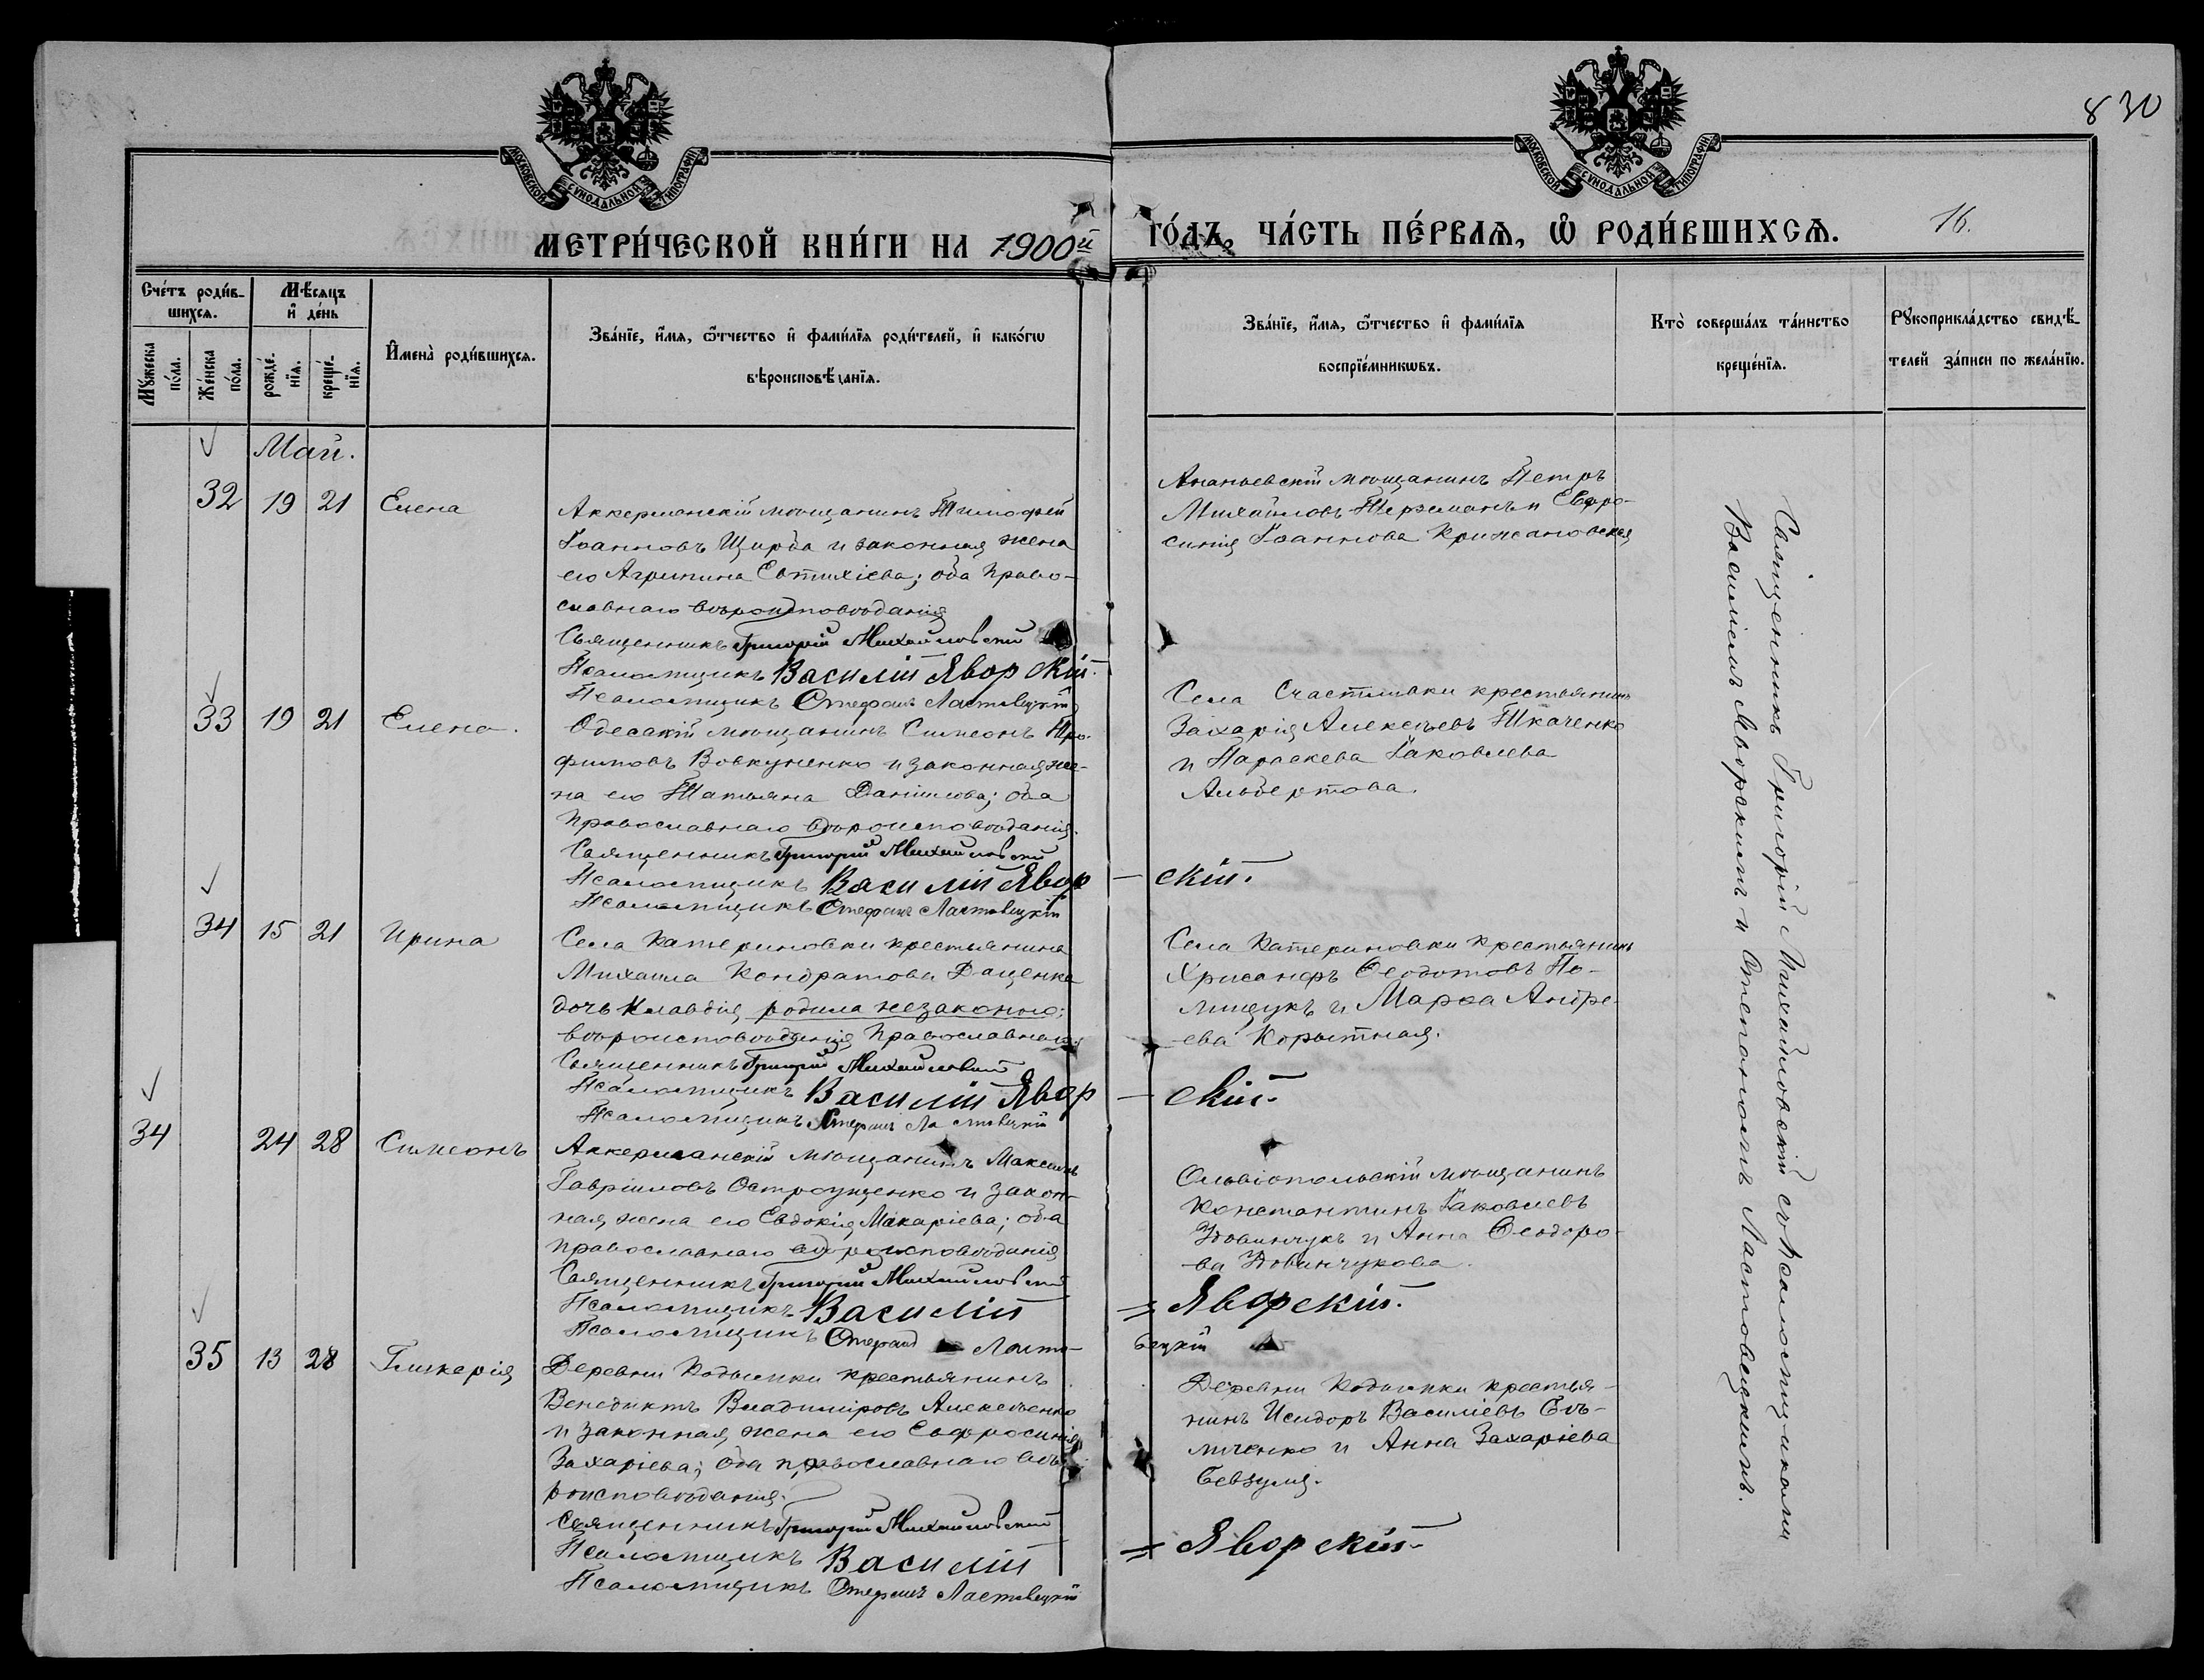 830
МОСКОВСКОЙ СУНОДАЛЬНОЙ ТИПОГРАФІИ
МОСКОВСКОЙ СУНОДАЛЬНОЙ ТИПОГРАФІИ
МЕТРИ́ЧЕСКОЙ КНИ́ГИ НА 1900й ГО́ДЪ, ЧА́СТЬ ПЕ́РВАѦ, Ѡ҆ РОДИ́ВШИХСѦ. 16.
Сче́тъ роди́в-
шихсѧ.
Мѣ́сѧцъ
и҆ де́нь
Мꙋ́жеска
по́ла.
Же́нска
по́ла.
рожде́-
нїѧ.
креще́-
нїѧ.
И҆мена̀ роди́вшихсѧ.
Зва́нїе, и҆́мѧ, ѻ҆́тчество и҆ фами́лїѧ роди́телей, и҆ како́гѡ
вѣроисповѣ́данїѧ.
Зва́нїе, и҆́мѧ, ѻ҆́тчество и҆ фами́лїѧ
воспрїе́мникѡвъ.
Кто̀ соверша́лъ та́инство
креще́нїѧ.
Рꙋкоприкла́дство свидѣ́-
телей за́писи по жела́нїю.
Май.
32 19 21 Елена
Аккерманскій мѣщанинъ Тимофей
Іоанновъ Щирба и законная жена
его Агрипина Евтихіева; оба право-
славнаго вѣроисповѣданія
Священникъ Григорій Михайловскій
Псаломщикъ Василій Яворскій.
Псаломщикъ Стефанъ Ластовецкій
Ананьевскій мѣщанинъ Петръ
Михайловъ Терземанъ и Евфро-
синія Іоаннова Крижановская
33 19 21 Елена.
Одесскій мѣщанинъ Симеонъ Тро-
фимовъ Вовкуненко и законная же-
на его Татьяна Даніилова; оба
православнаго вѣроисповѣданія.
Священникъ Григорій Михайловскій
Псаломщикъ Василій Явор — скій.
Псаломщикъ Стефанъ Ластовецкій
Села Счастливки крестьянинъ
Захарія Алексѣевъ Ткаченко
и Параскева Іаковлева
Альбертова.
34 15 21 Ирина
Села Катериновки крестьянина
Михаила Кондратова Даценка
дочь Клавдія, родила незаконно;
вѣроисповѣданія Православнаго
Священникъ Григорій Михайловскій
Псаломщикъ Василій Явор — скій.
Псаломщикъ Стефанъ Ластовецкій
Села Катериновки крестьянинъ
Хрисанфъ Ѳеодотовъ По-
лищукъ и Марѳа Андре-
ева Корытная.
34 24 28 Симеонъ
Аккерманскій мѣщанинъ Максимъ
Гавріиловъ Остроущенко и закон-
ная жена его Евдокія Макаріева; оба
православнаго вѣроисповѣданія
Священникъ Григорій Михайловскій
Псаломщикъ Василій = Яворскій.
Псаломщикъ Стефанъ Ласто- вецкій
Ольвіопольскій мѣщанинъ
Константинъ Іаковлевъ
Вдовинчукъ и Анна Ѳеодоро-
ва Вдовинчукова.
35 13 28 Гликерія
Деревни Кодымки крестьянинъ
Венедиктъ Владиміровъ Алексѣенко
и законная жена его Евфросинія
Захаріева; оба православнаго вѣ-
роисповѣданія.
Священникъ Григорій Михайловскій
Псаломщикъ Василій = Яворскій.
Псаломщикъ Стефанъ Ластовецкій
Деревни Кодымки крестья-
нинъ Исидоръ Василіевъ
и Анна Захаріева
Бевзумя.
Священникъ Григорій Михайловскій съ Псаломщиками
Василіемъ Яворскимъ и Степаномъ Ластовецкимъ.